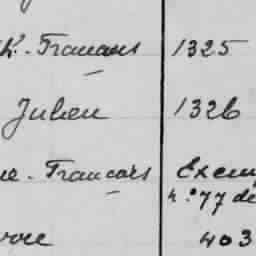 Ph. François 1325
Julien 1326
ne. François Exem
n.° 77 de
403